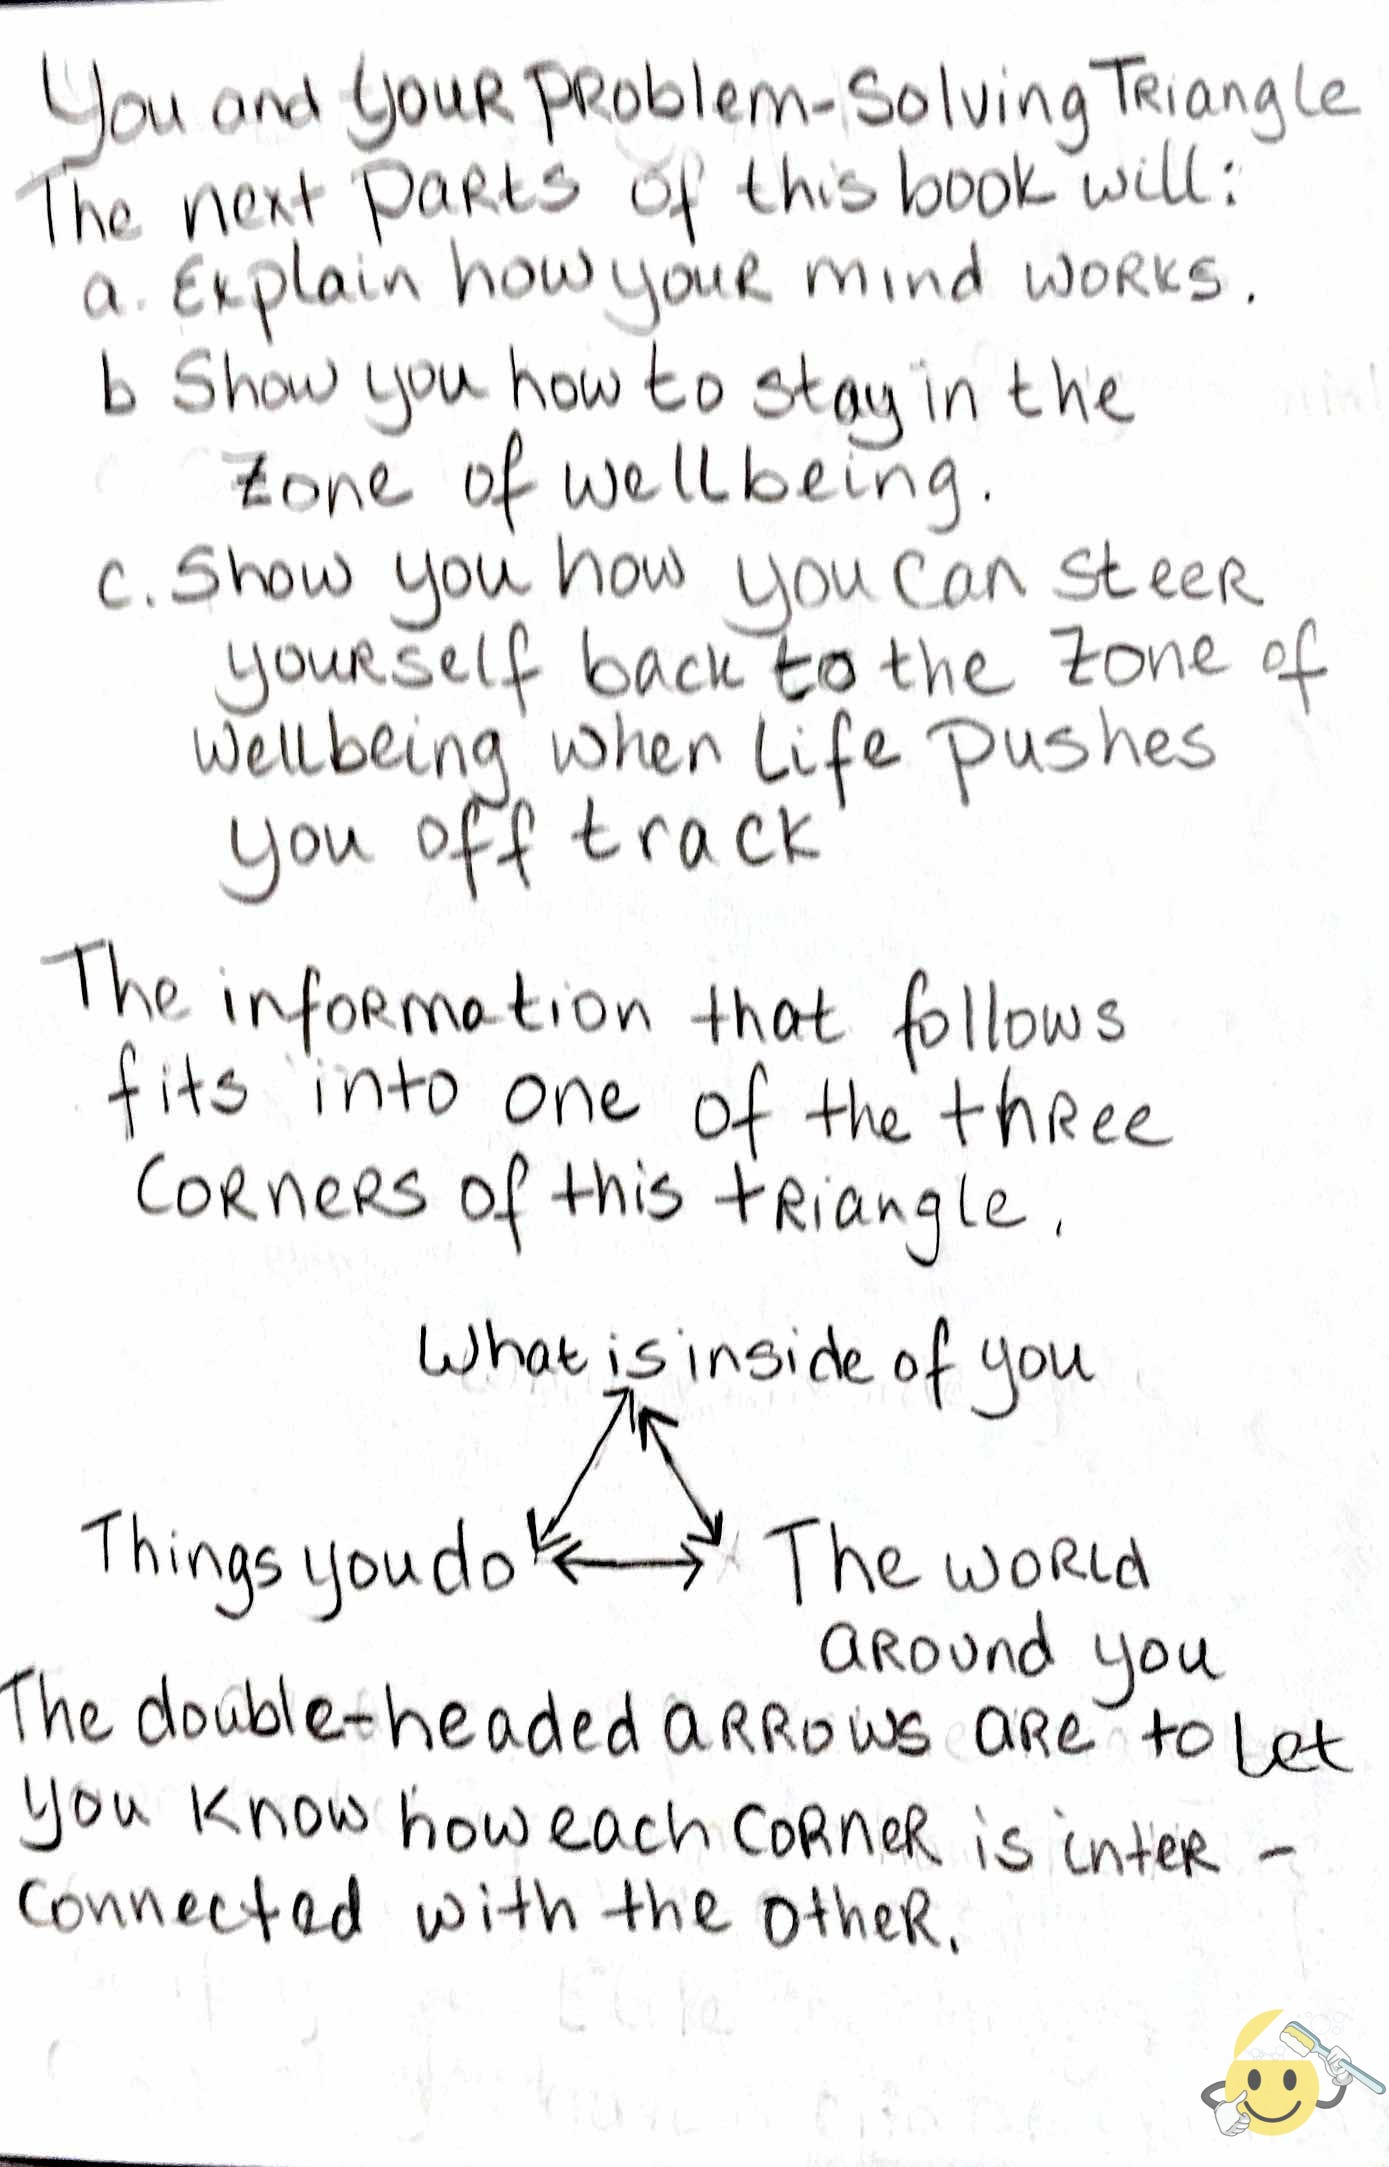 You and your problem-solving Triangle
The next parts of this book will:
a. Explain how your mind works.
b Show you how to stay in the
zone of wellbeing.
c. Show you how you can steer
yourself back to the zone of
wellbeing when life pushes
you off track
The information that follows
fits into one of the three
corners of this triangle.
What is inside of you
Things you do
The world
around you
The double-headed arrows are to let
you know how each corner is inter-
connected with the other.